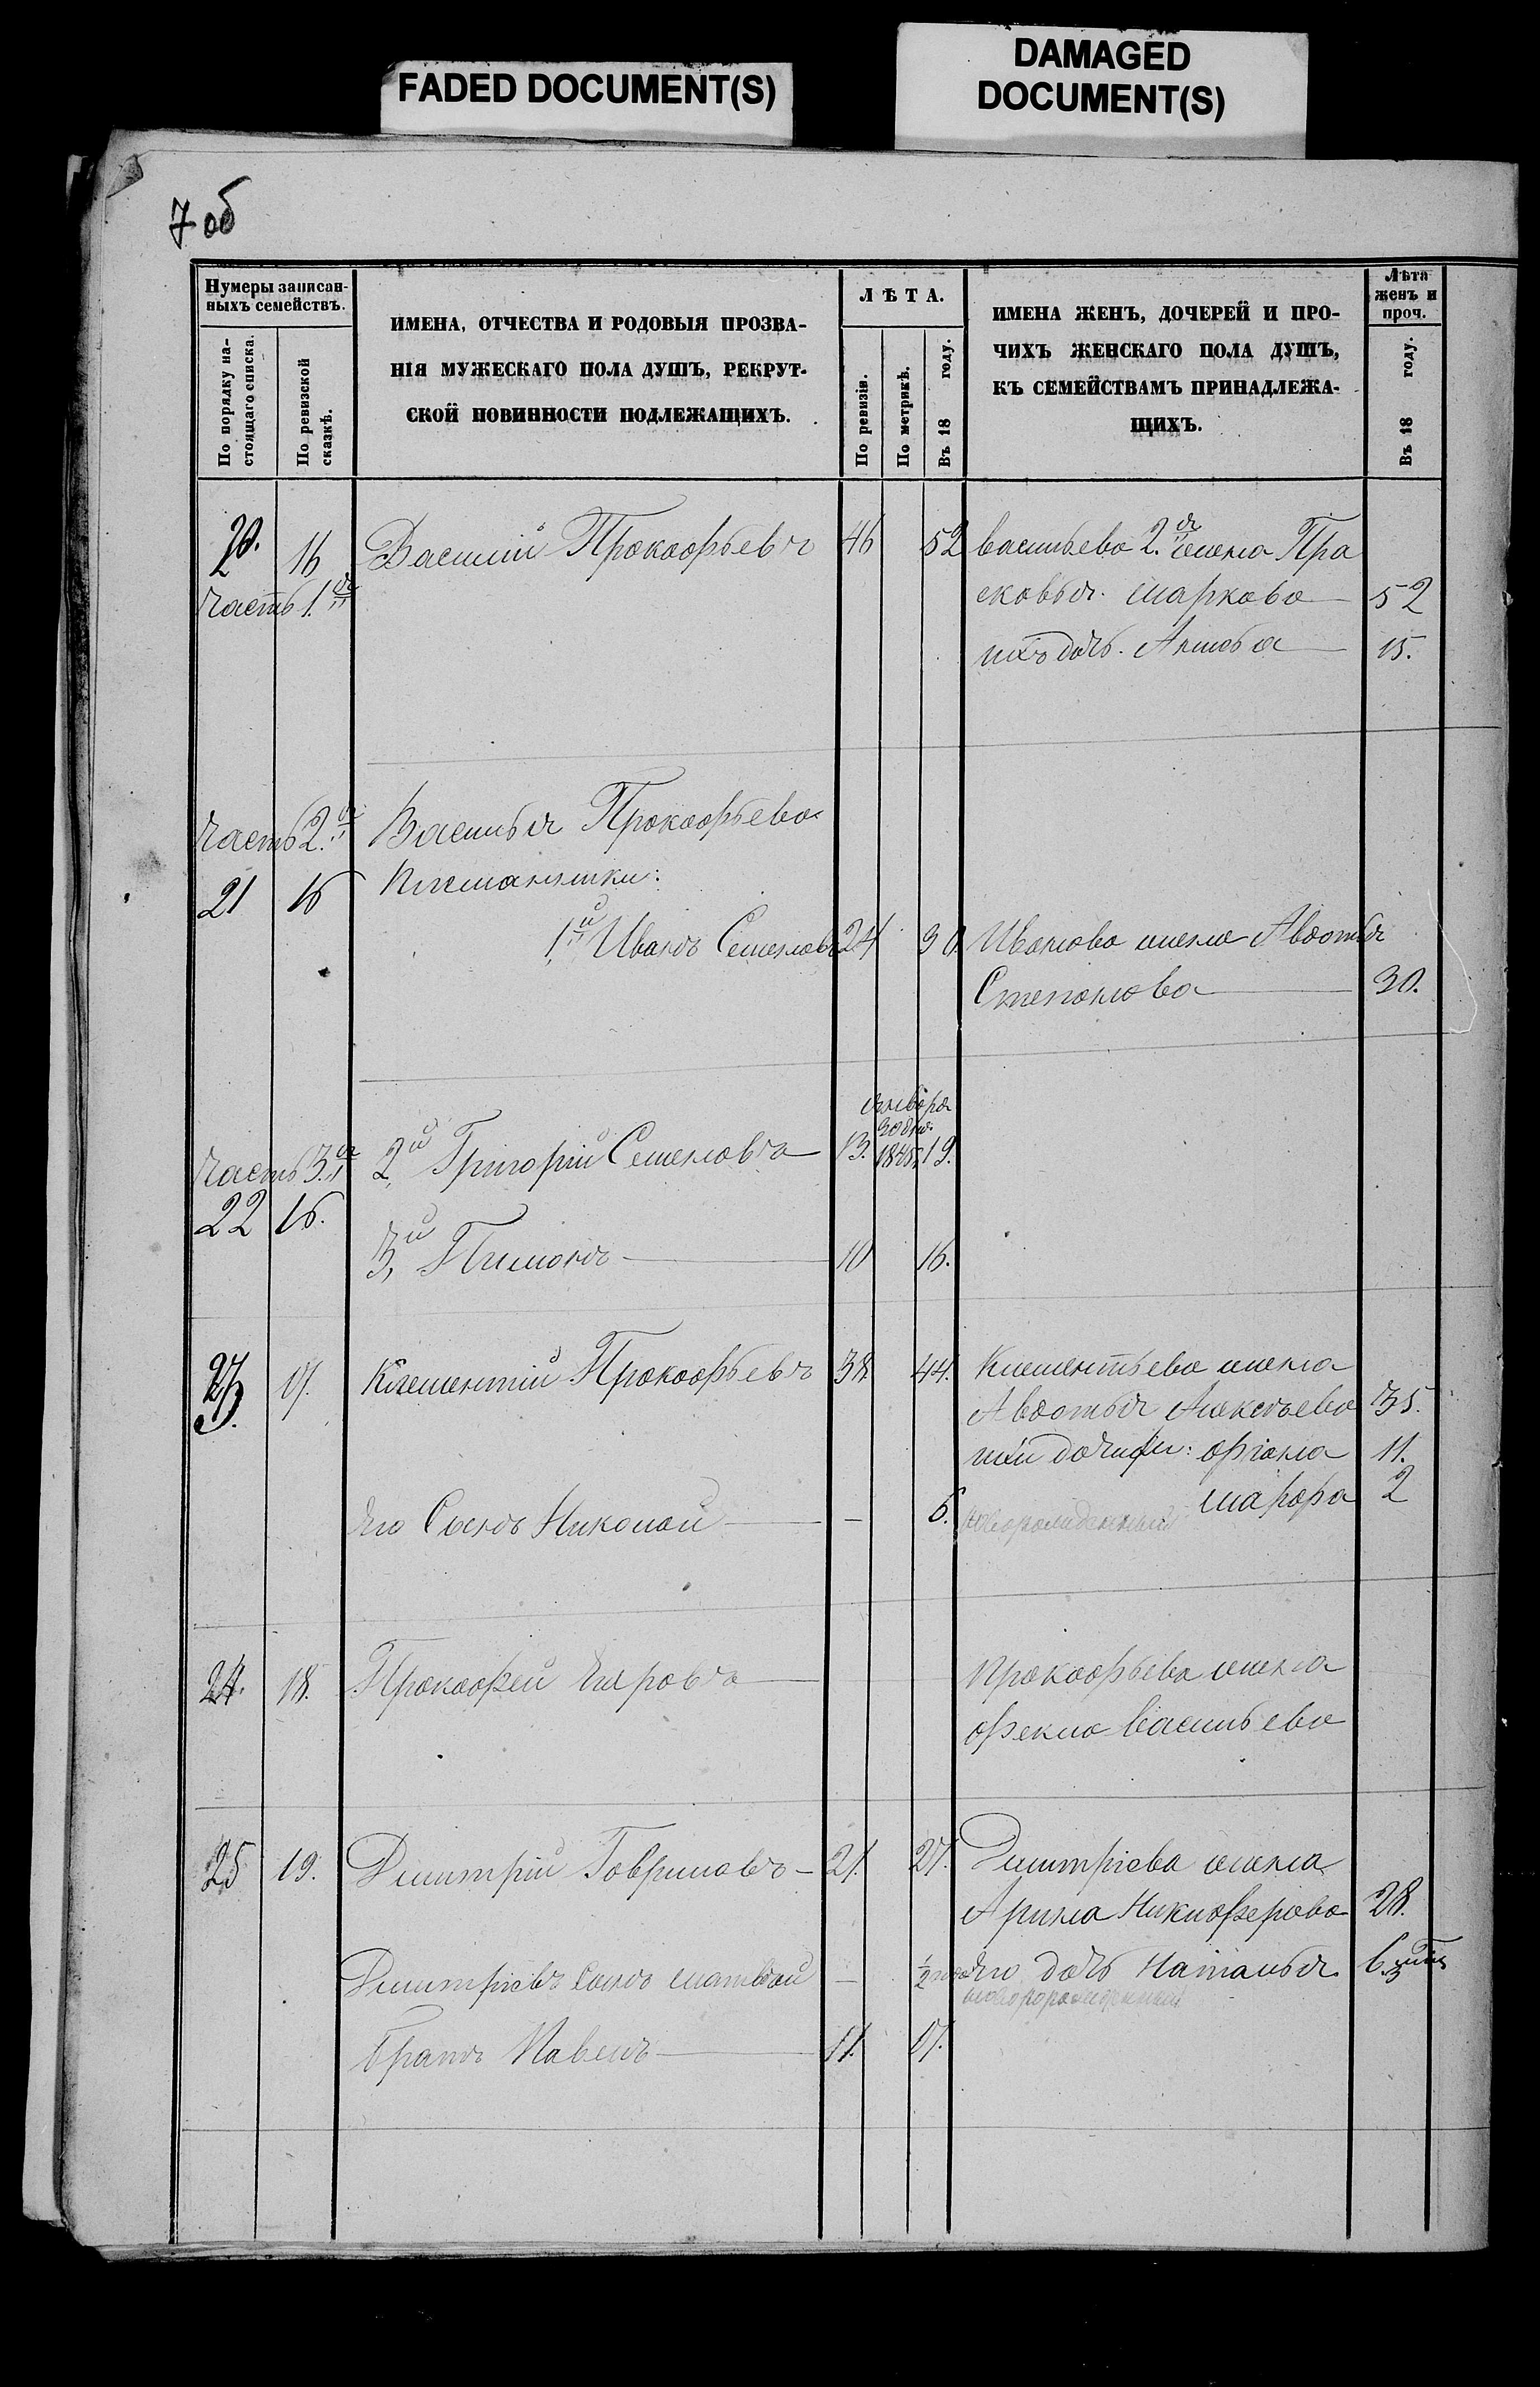 FADED DOCUMENT(S)
DAMAGED
DOCUMENT(S)
7 об
Нумеры записан-
ныхъ семействъ.
По порядку на-
стоящаго списка.
По ревизской
сказкѣ.
ИМЕНА, ОТЧЕСТВА И РОДОВЫЯ ПРОЗВА-
НІЯ МУЖЕСКАГО ПОЛА ДУШЪ, РЕКРУТ-
СКОЙ ПОВИННОСТИ ПОДЛЕЖАЩИХЪ.
ЛѢТА.
По ревизіи.
По метрикѣ.
Въ 18 году.
ИМЕНА ЖЕНЪ, ДОЧЕРЕЙ И ПРО-
ЧИХЪ ЖЕНСКАГО ПОЛА ДУШЪ,
КЪ СЕМЕЙСТВАМЪ ПРИНАДЛЕЖА-
ЩИХЪ.
Лѣта
женъ и
проч.
Въ 18 году.
20. 16 Василій Прокофьевъ 46 52 васильева 2.я жена Пра
часть 1.я сковья Маркова 52
ихъ дочь 15.
часть 2.я Василья Прокофьева
21 16 племянники:
1.й Иванъ Семеновъ 24 30 Иванова жена Авдотья
Степанова 30.
января
30 дня
часть 3.я 2й Григорій Семеновъ 13. 1845. 19.
22 16. 3й Пимонъ 10 16.
23. 17. Клементій Прокофьевъ 38. 44. Клементьева жена
Авдотья Алексѣева 35.
ихъ дочери: офіона 11.
Марфа 2
его Сынъ Николай — 6. новорожденный
24. 18. Прокофей Егоровъ Прокофьева жена
офекла васильева
25 19. Дмитрій Гавриловъ 21. 27. Дмитріева жена
Арина Никиферова 28.
Дмитріевъ сынъ матвей — 1/2 года его дочь Наталья 6.
новорожденный
братъ Павелъ 11. 17.